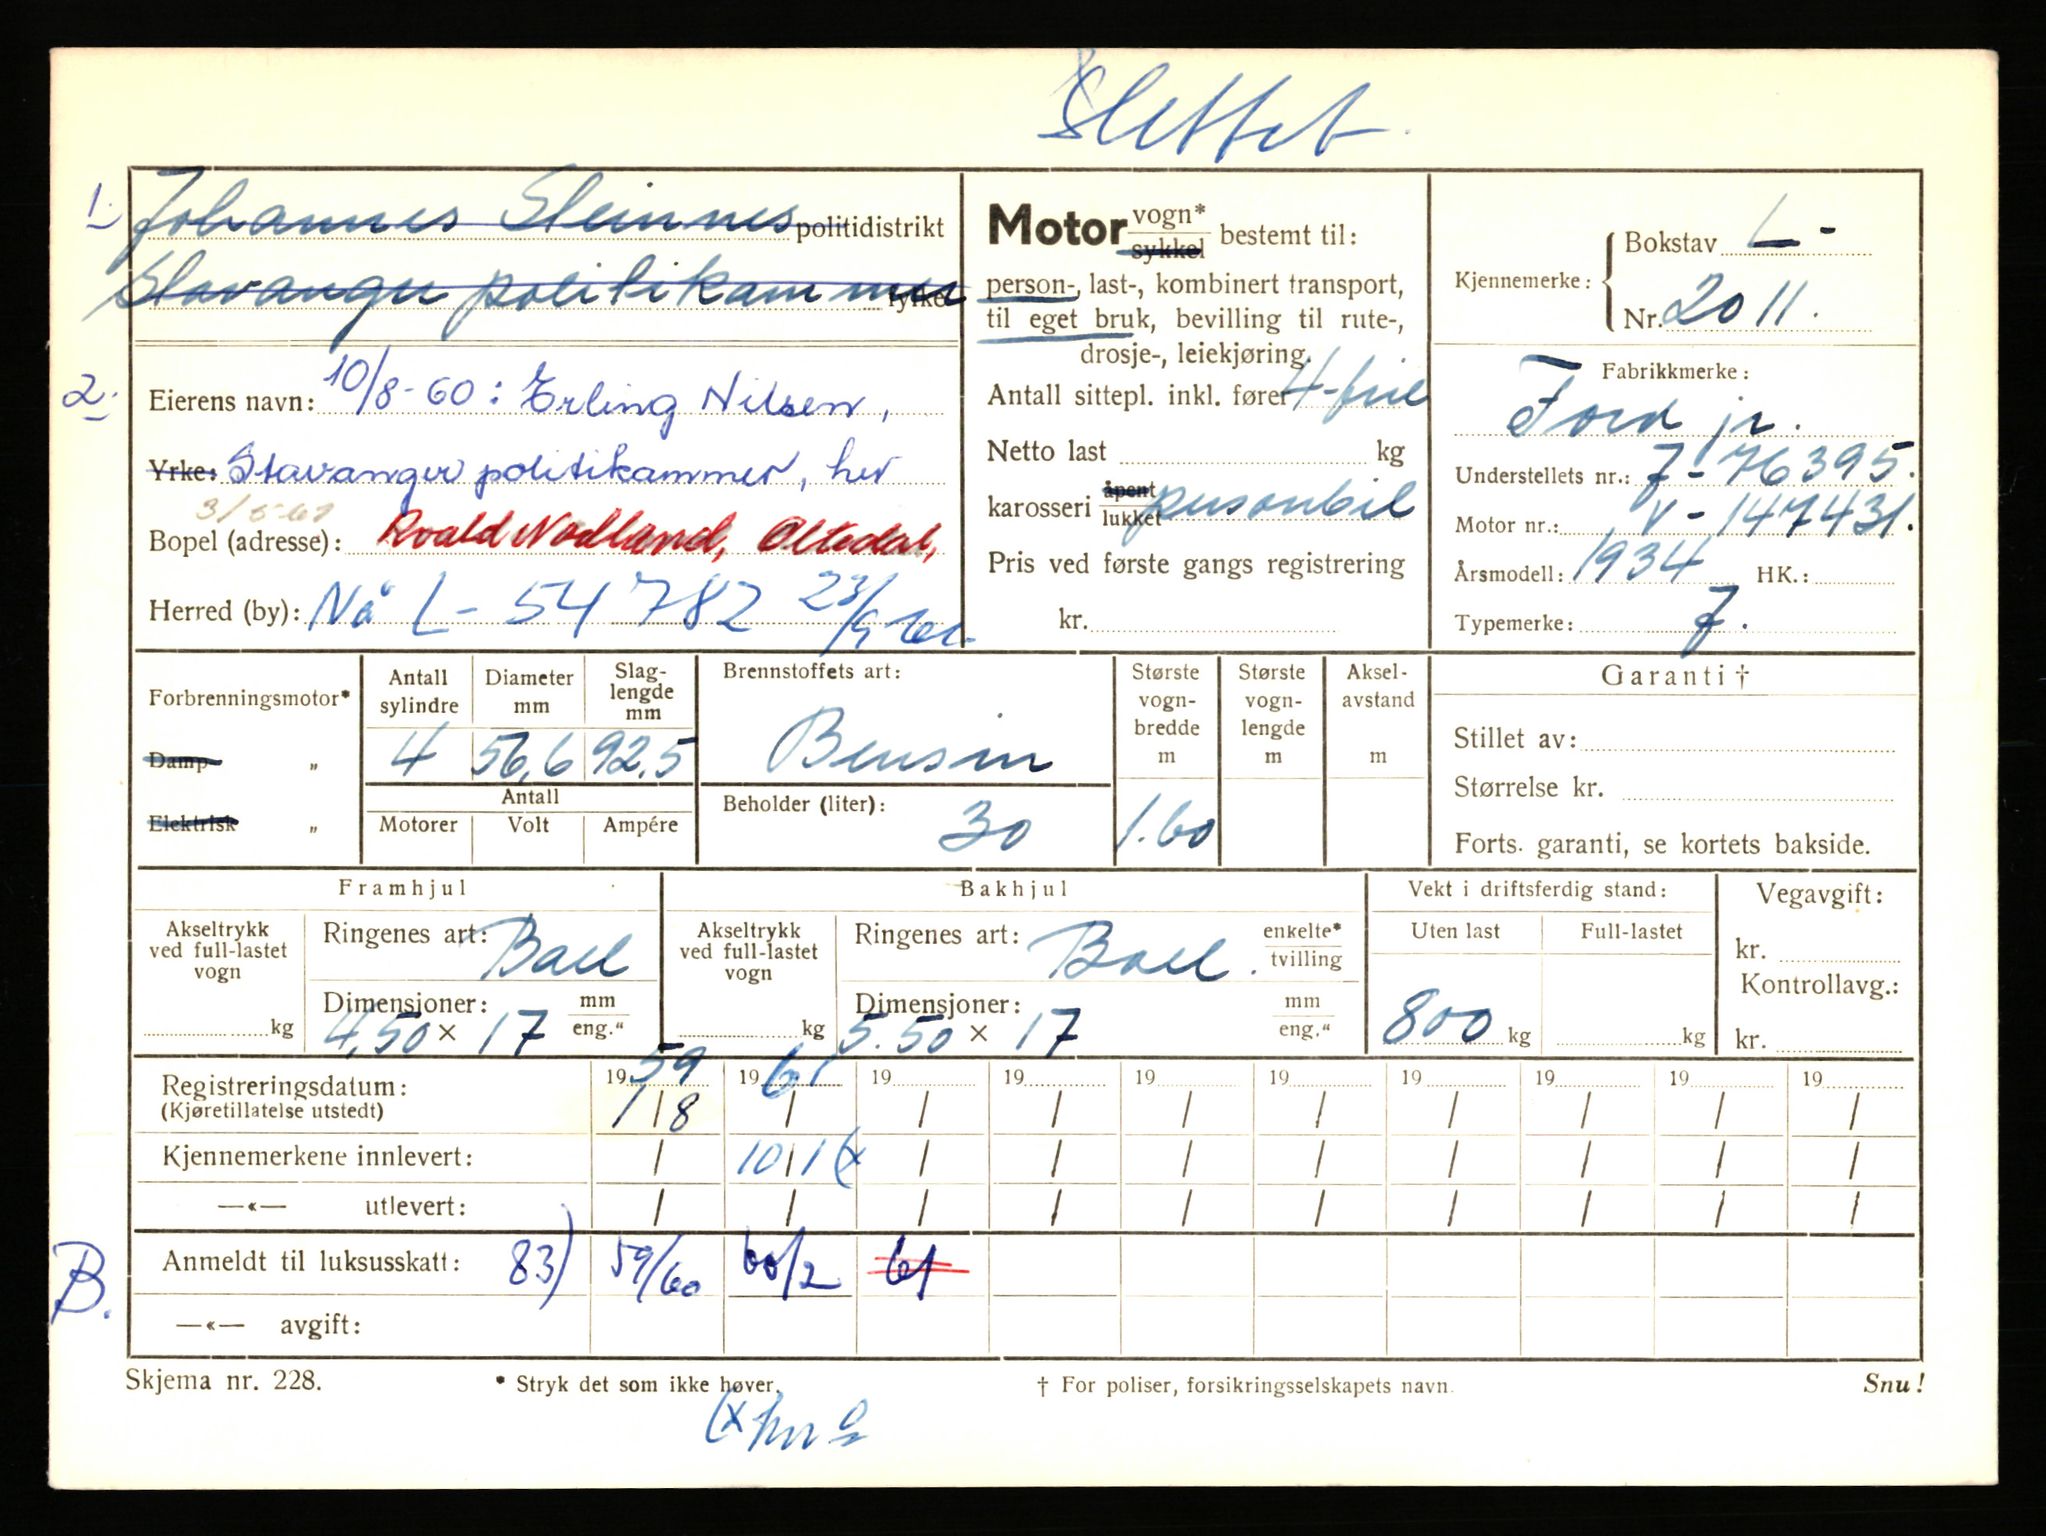 Slettet.
1. Johannes Steinnes politidistrikt
Stavanger politikammer fylke
2. Eierens navn: 10/8-60: Erling Nilsen,
Yrke: Stavanger politikammer, her
3/5-61
Bopel (adresse): Roald Nodland, Oltedal,
Herred (by): Nå L-54782 23/9-61
Motor vogn* sykkel bestemt til:
person-, last-, kombinert transport,
til eget bruk, bevilling til rute-,
drosje-, leiekjøring.
Antall sittepl. inkl. fører 4-fire
Netto last kg
karosseri åpent lukket personbil
Pris ved første gangs registrering
kr.
Kjennemerke: Bokstav L-
Nr. 2011.
Fabrikkmerke:
Ford jr.
Understellets nr.: 7-76395.
Motor nr.: V-147431.
Årsmodell: 1934 HK.:
Typemerke: 7.
Forbrenningsmotor*
Damp "
Elektrisk "
Antall sylindre Diameter mm Slag-lengde mm
4 56,6 92,5
Antall
Motorer Volt Ampére
Brennstoffets art:
Bensin
Beholder (liter):
30
Største vogn-bredde m
1.60
Største vogn-lengde m
Aksel-avstand m
Garanti †
Stillet av:
Størrelse kr.
Forts. garanti, se kortets bakside.
Framhjul
Akseltrykk ved full-lastet vogn
kg
Ringenes art: Ball
Dimensjoner: mm
4,50 × 17 eng."
Bakhjul
Akseltrykk ved full-lastet vogn
kg
Ringenes art: Ball. enkelte* tvilling
Dimensjoner: mm
5.50 × 17 eng."
Vekt i driftsferdig stand:
Uten last Full-lastet
800 kg kg
Vegavgift:
kr.
Kontrollavg.:
kr.
Registreringsdatum: 1959 1961 19 19 19 19 19 19 19 19
(Kjøretillatelse utstedt) 1/8 / / / / / / / / /
Kjennemerkene innlevert: / 10/1 (x / / / / / / / /
—«— utlevert: / / / / / / / / / /
B. Anmeldt til luksusskatt: 83) 59/60 60/2 61
—«— avgift:
Skjema nr. 228. * Stryk det som ikke høver. † For poliser, forsikringsselskapets navn. Snu!
(x